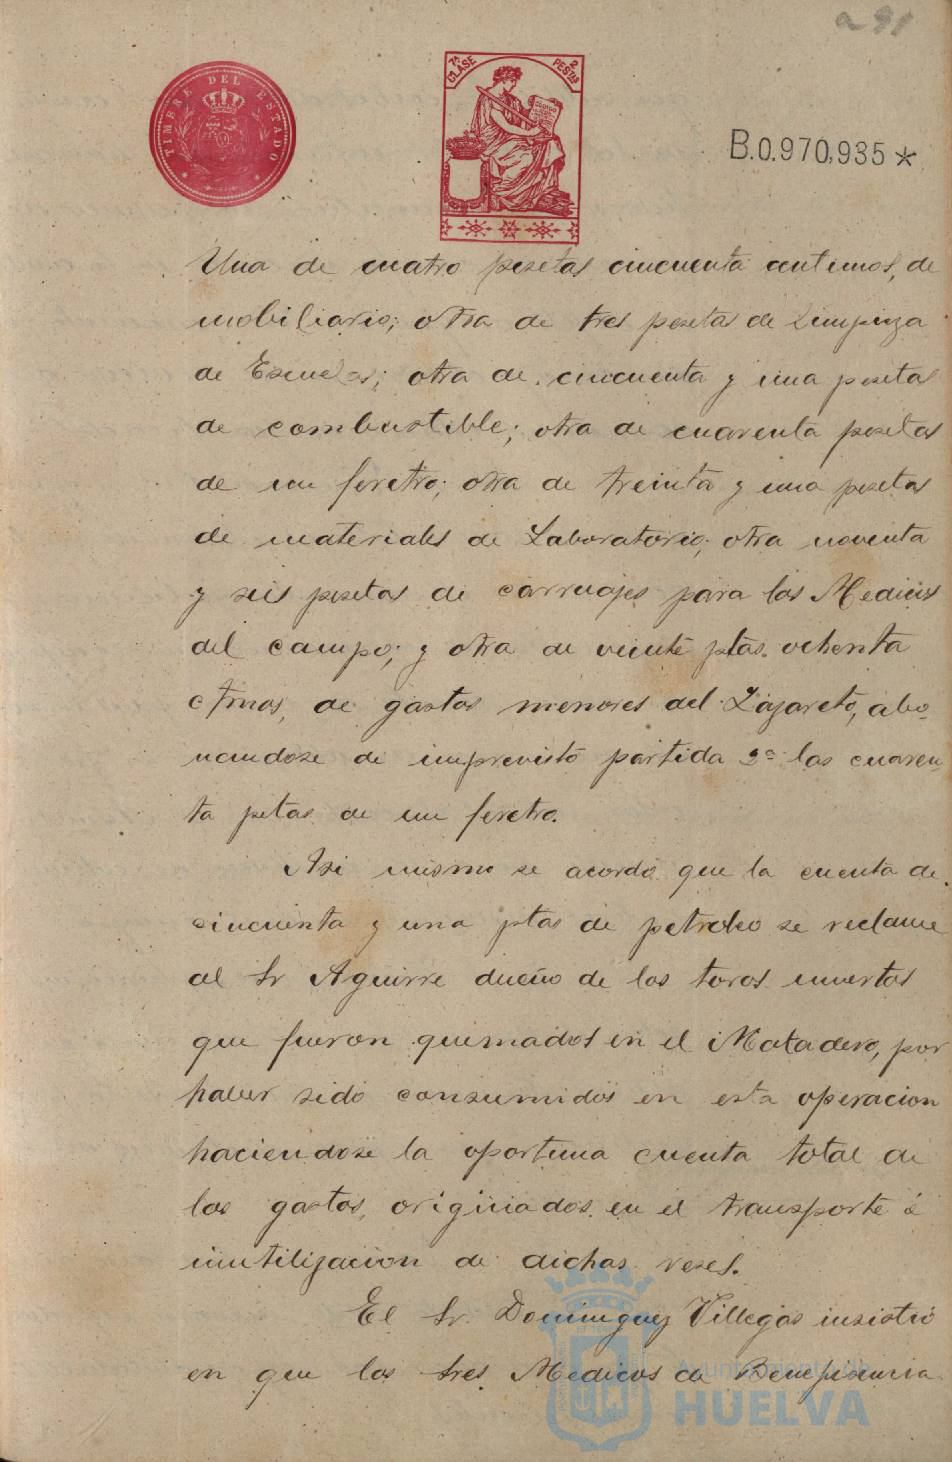 a 91
TIMBRE DEL ESTADO
7ª CLASE
2 PESTAS
B.0.970,935 *
Una de cuatro pesetas cincuenta centimos, de
mobiliario; otra de tres pesetas de Limpieza
de Escuelas; otra de cincuenta y una pesetas
de combustible; otra de cuarenta pesetas
de un feretro; otra de treinta y una pesetas
de materiales de Laboratorio; otra noventa
y seis pesetas de carruajes para los Medicos
del campo; y otra de veinte ptas. ochenta
ctmos, de gastos menores del Lazareto, abo-
nandose de imprevisto partida 2ª las cuaren-
ta petas de un feretro.
Asi mismo se acordó que la cuenta de
cincuenta y una ptas de petroleo se reclame
al Sr Aguirre dueño de los toros muertos
que fueron quemados en el Matadero, por
haber sido consumidos en esta operacion
haciendose la oportuna cuenta total de
los gastos, originados en el transporte é
inutilizacion de dichas reses.
El Sr. Dominguez Villegas insistió
en que los tres Medicos de Beneficencia
Ayuntamiento de
HUELVA